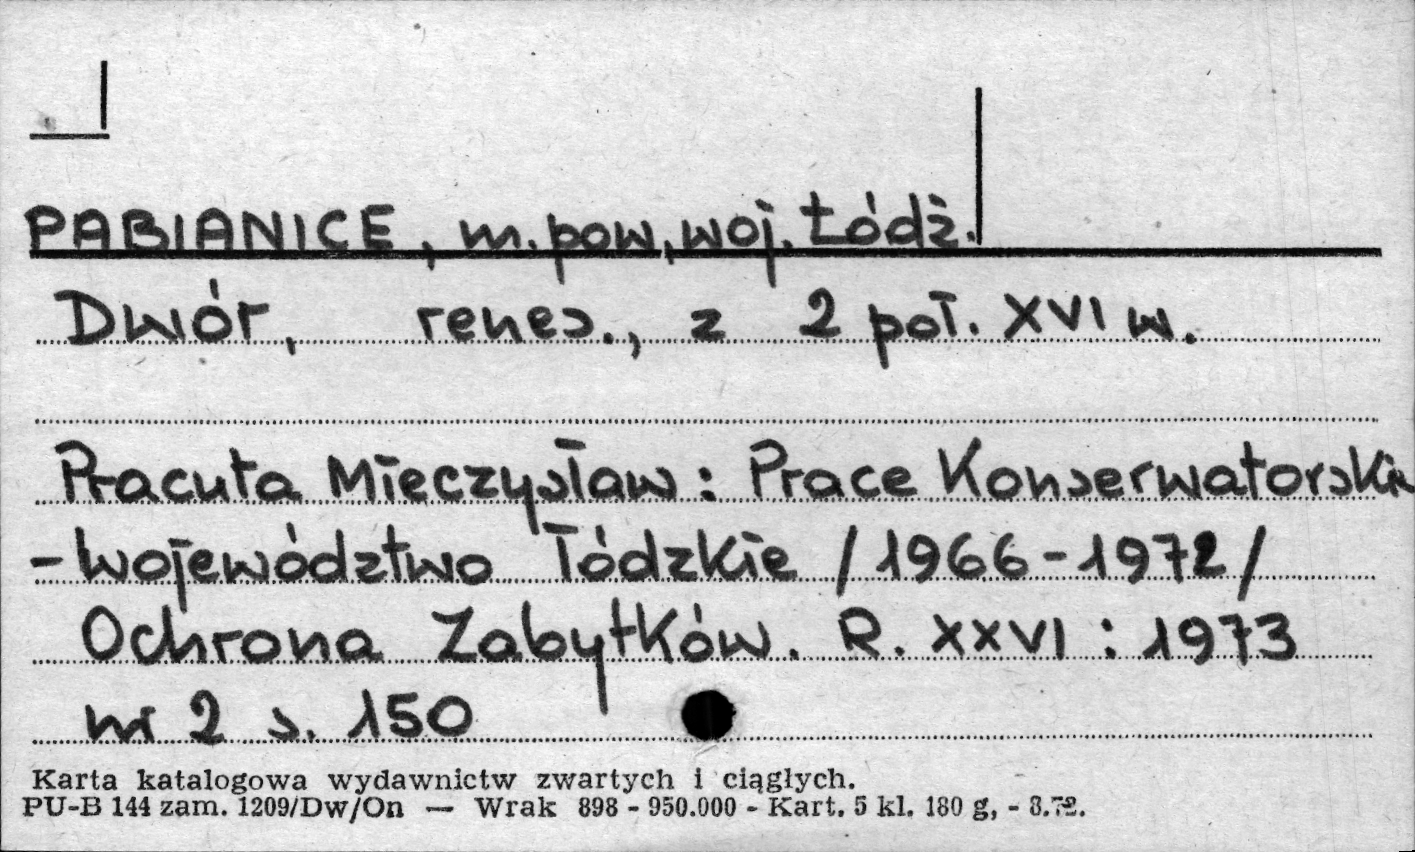 PABIANICE, m. pow, woj. Łódź.
Dwór, renes., z 2 poł. XVI w.
Pracuta Mieczysław: Prace Konserwatorskie
- województwo łódzkie /1966-1972/
Ochrona Zabytków. R. XXVI : 1973
nr 2 s. 150
Karta katalogowa wydawnictw zwartych i ciągłych.
PU-B 144 zam. 1209/Dw/On — Wrak 898 - 950.000 - Kart. 5 kl. 180 g, - 8.72.